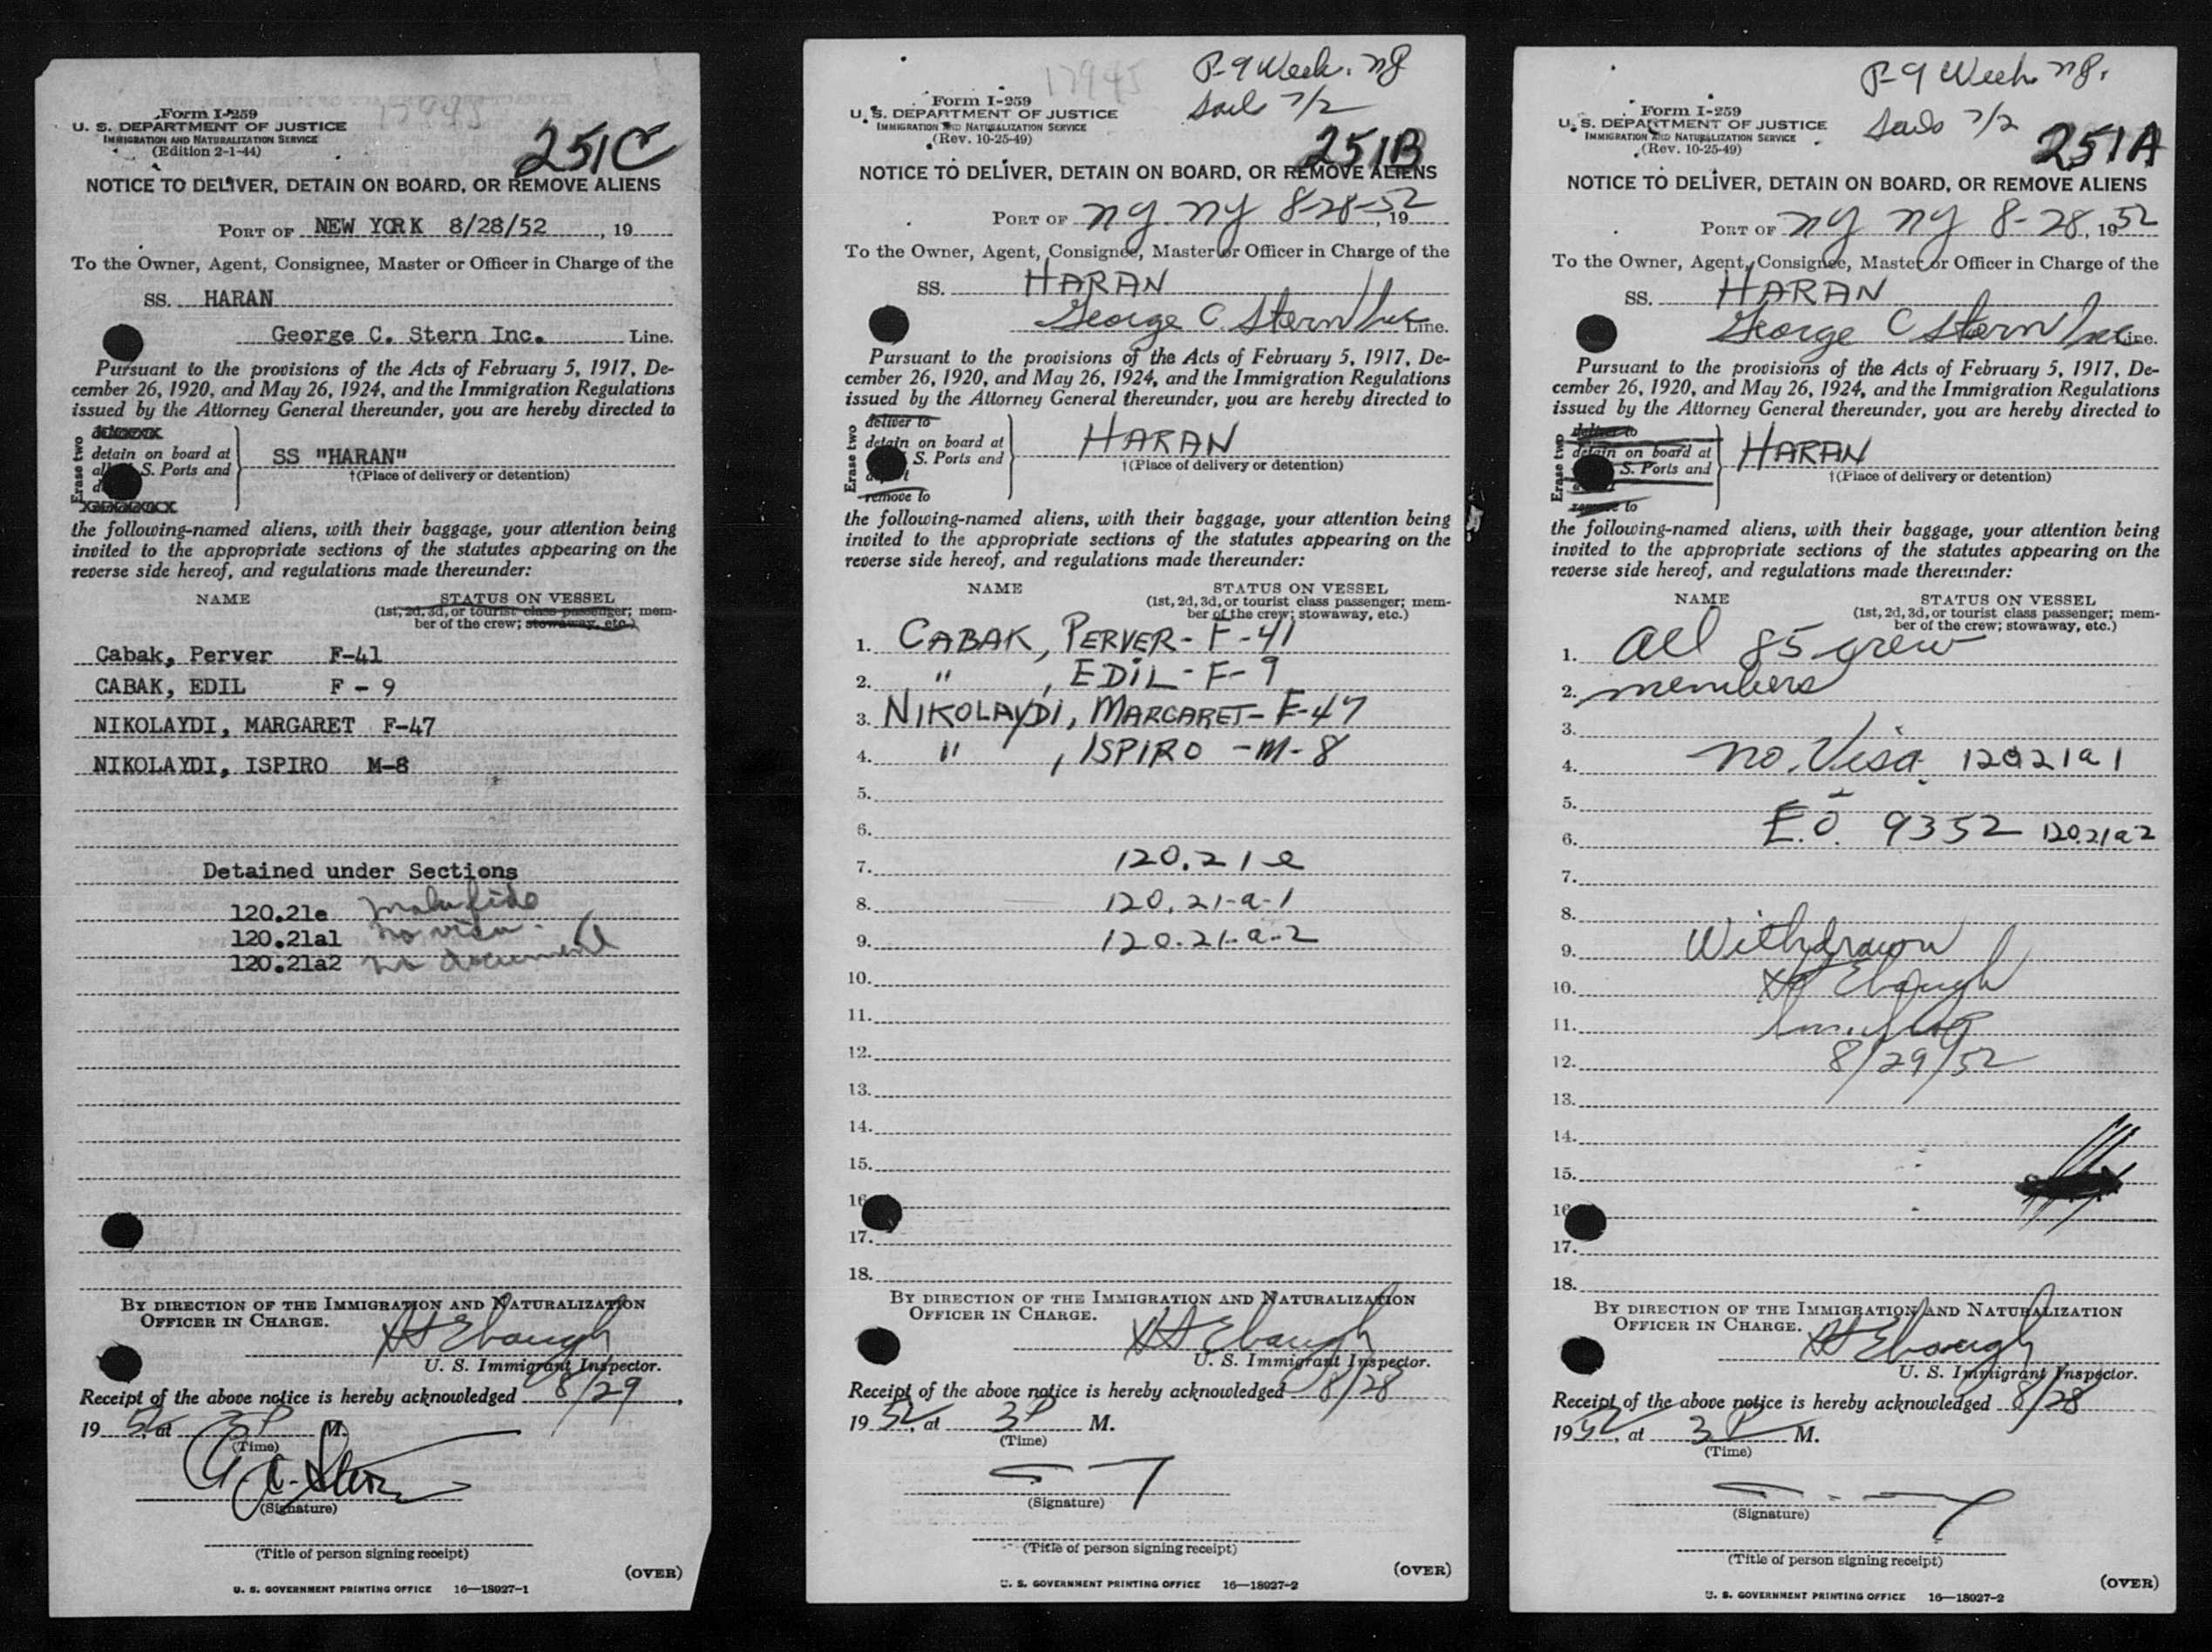 Form I-259
U. S. DEPARTMENT OF JUSTICE
IMMIGRATION AND NATURALIZATION SERVICE
(Edition 2-1-44)
251C
NOTICE TO DELIVER, DETAIN ON BOARD, OR REMOVE ALIENS
PORT OF NEW YORK 8/28/52, 19
To the Owner, Agent, Consignee, Master or Officer in Charge of the
SS. HARAN
George C. Stern Inc. Line.
Pursuant to the provisions of the Acts of February 5, 1917, De-
cember 26, 1920, and May 26, 1924, and the Immigration Regulations
issued by the Attorney General thereunder, you are hereby directed to
Erase two
detain on board at
S. Ports and
SS "HARAN"
†(Place of delivery or detention)
the following-named aliens, with their baggage, your attention being
invited to the appropriate sections of the statutes appearing on the
reverse side hereof, and regulations made thereunder:
NAME STATUS ON VESSEL
(1st, 2d, 3d, or tourist class passenger; mem-
ber of the crew; stowaway, etc.)
Cabak, Perver F-41
CABAK, EDIL F - 9
NIKOLAYDI, MARGARET F-47
NIKOLAYDI, ISPIRO M-8
Detained under Sections
120.21e Mala fide
120.21a1 no visa.
120.21a2 no document
BY DIRECTION OF THE IMMIGRATION AND NATURALIZATION
OFFICER IN CHARGE.
Ebaugh
U. S. Immigrant Inspector.
Receipt of the above notice is hereby acknowledged 8/29,
19 52 at 3 P M.
(Time)
G. C. Stern
(Signature)
(Title of person signing receipt)
(OVER)
U. S. GOVERNMENT PRINTING OFFICE 16—18927-1
17945
P-9 Week. NJ
Sails 7/2
Form I-259
U. S. DEPARTMENT OF JUSTICE
IMMIGRATION AND NATURALIZATION SERVICE
(Rev. 10-25-49)
251B
NOTICE TO DELIVER, DETAIN ON BOARD, OR REMOVE ALIENS
PORT OF NY. NY 8-28-52, 19
To the Owner, Agent, Consignee, Master or Officer in Charge of the
SS. HARAN
George C. Stern Inc Line.
Pursuant to the provisions of the Acts of February 5, 1917, De-
cember 26, 1920, and May 26, 1924, and the Immigration Regulations
issued by the Attorney General thereunder, you are hereby directed to
Erase two
deliver to
detain on board at
S. Ports and
remove to
HARAN
†(Place of delivery or detention)
the following-named aliens, with their baggage, your attention being
invited to the appropriate sections of the statutes appearing on the
reverse side hereof, and regulations made thereunder:
NAME STATUS ON VESSEL
(1st, 2d, 3d, or tourist class passenger; mem-
ber of the crew; stowaway, etc.)
1. CABAK, PERVER - F - 41
2. " , EDIL - F - 9
3. NIKOLAYDI, MARGARET - F-47
4. " , ISPIRO - M - 8
5.
6.
7. 120.21e
8. 120.21-a-1
9. 120.21-a-2
10.
11.
12.
13.
14.
15.
16
17.
18.
BY DIRECTION OF THE IMMIGRATION AND NATURALIZATION
OFFICER IN CHARGE.
Ebaugh
U. S. Immigrant Inspector.
Receipt of the above notice is hereby acknowledged 8/28
19 52, at 3 P M.
(Time)
(Signature)
(Title of person signing receipt)
(OVER)
U. S. GOVERNMENT PRINTING OFFICE 16—18927-2
P-9 Week. NJ.
Sails 7/2
Form I-259
U. S. DEPARTMENT OF JUSTICE
IMMIGRATION AND NATURALIZATION SERVICE
(Rev. 10-25-49)
251A
NOTICE TO DELIVER, DETAIN ON BOARD, OR REMOVE ALIENS
PORT OF NY NY 8-28, 1952
To the Owner, Agent, Consignee, Master or Officer in Charge of the
SS. HARAN
George C Stern Inc Line.
Pursuant to the provisions of the Acts of February 5, 1917, De-
cember 26, 1920, and May 26, 1924, and the Immigration Regulations
issued by the Attorney General thereunder, you are hereby directed to
Erase two
deliver to
detain on board at
S. Ports and
remove to
HARAN
†(Place of delivery or detention)
the following-named aliens, with their baggage, your attention being
invited to the appropriate sections of the statutes appearing on the
reverse side hereof, and regulations made thereunder:
NAME STATUS ON VESSEL
(1st, 2d, 3d, or tourist class passenger; mem-
ber of the crew; stowaway, etc.)
1. All 85 crew
2. members
3.
4. no. Visa. 12021a1
5.
6. E.O. 9352 120.21a2
7.
8.
9. Withdrawn
10. Ebaugh
11.
12. 8/29/52
13.
14.
15.
16
17.
18.
BY DIRECTION OF THE IMMIGRATION AND NATURALIZATION
OFFICER IN CHARGE.
Ebaugh
U. S. Immigrant Inspector.
Receipt of the above notice is hereby acknowledged 8/28
1952, at 3 P M.
(Time)
(Signature)
(Title of person signing receipt)
(OVER)
U. S. GOVERNMENT PRINTING OFFICE 16—18927-2